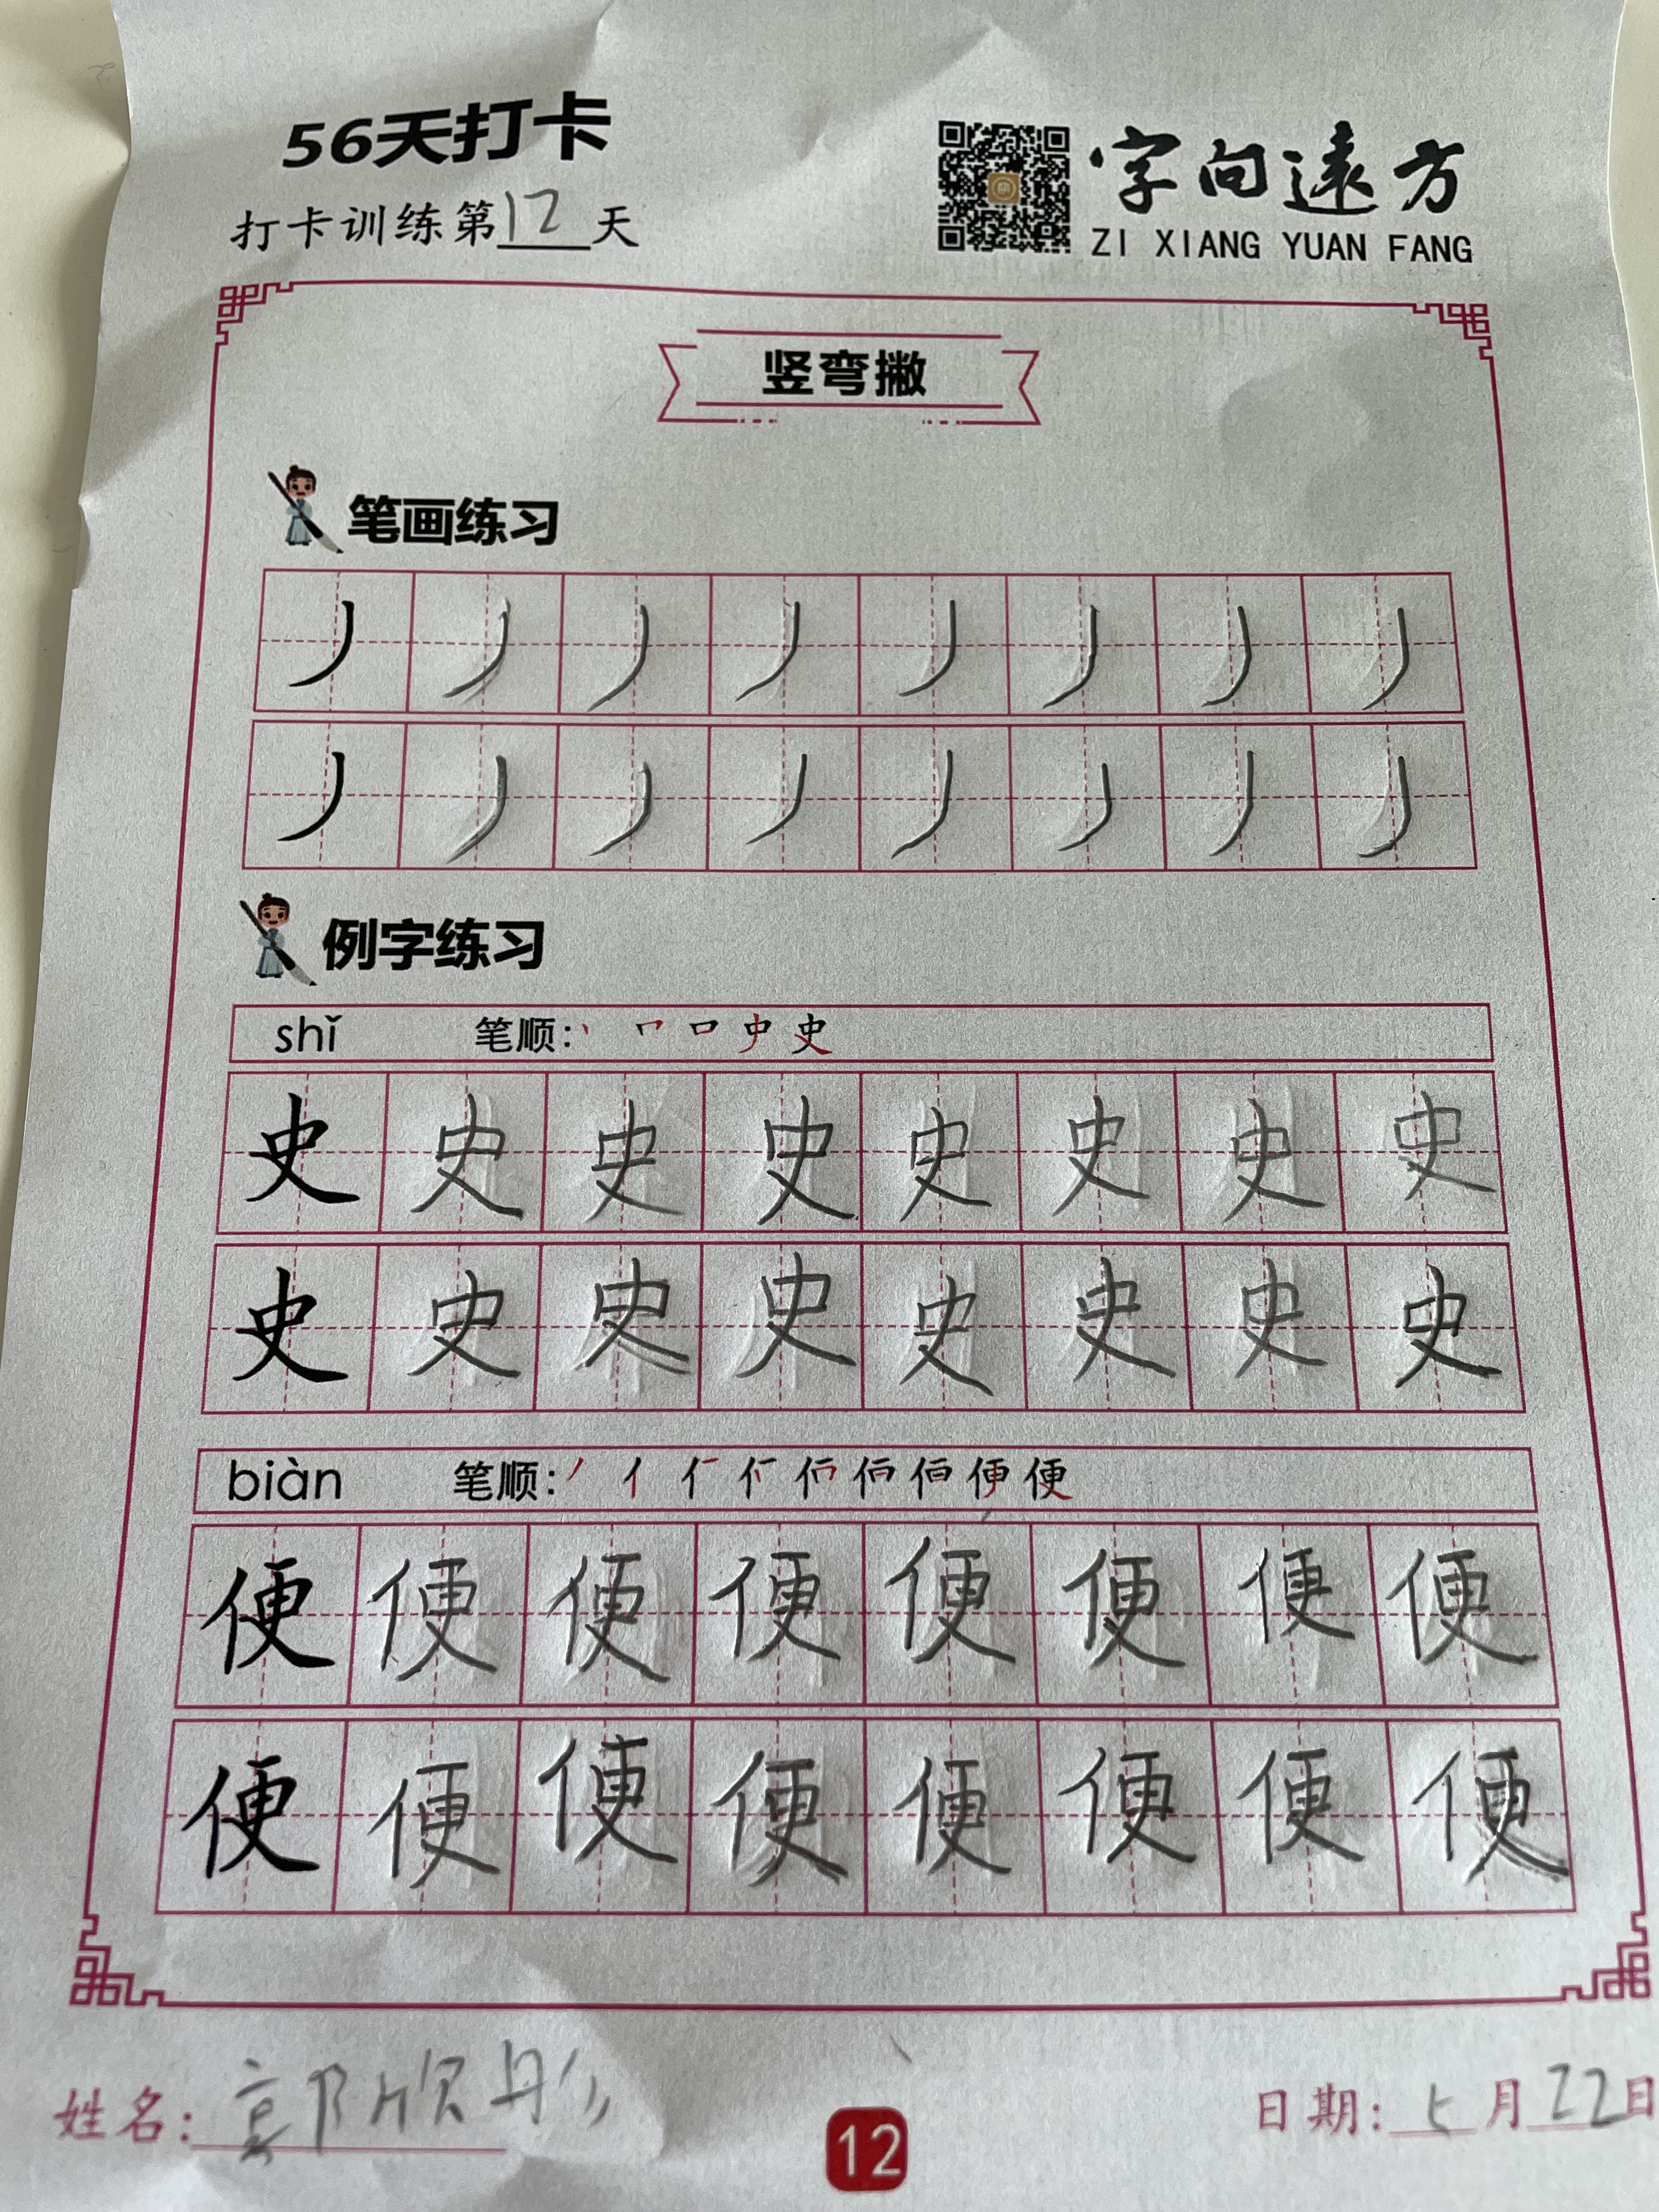 56天打卡
打卡训练第12天
字向遠方
ZI XIANG YUAN FANG
竖弯撇
笔画练习
丿 丿 丿 丿 丿 丿 丿 丿
丿 丿 丿 丿 丿 丿 丿 丿
例字练习
shǐ 笔顺:
史 史 史 史 史 史 史 史
史 史 史 史 史 史 史 史
biàn 笔顺:
便 便 便 便 便 便 便 便
便 便 便 便 便 便 便 便
姓名: 郭欣彤
日期: 5月22日
12